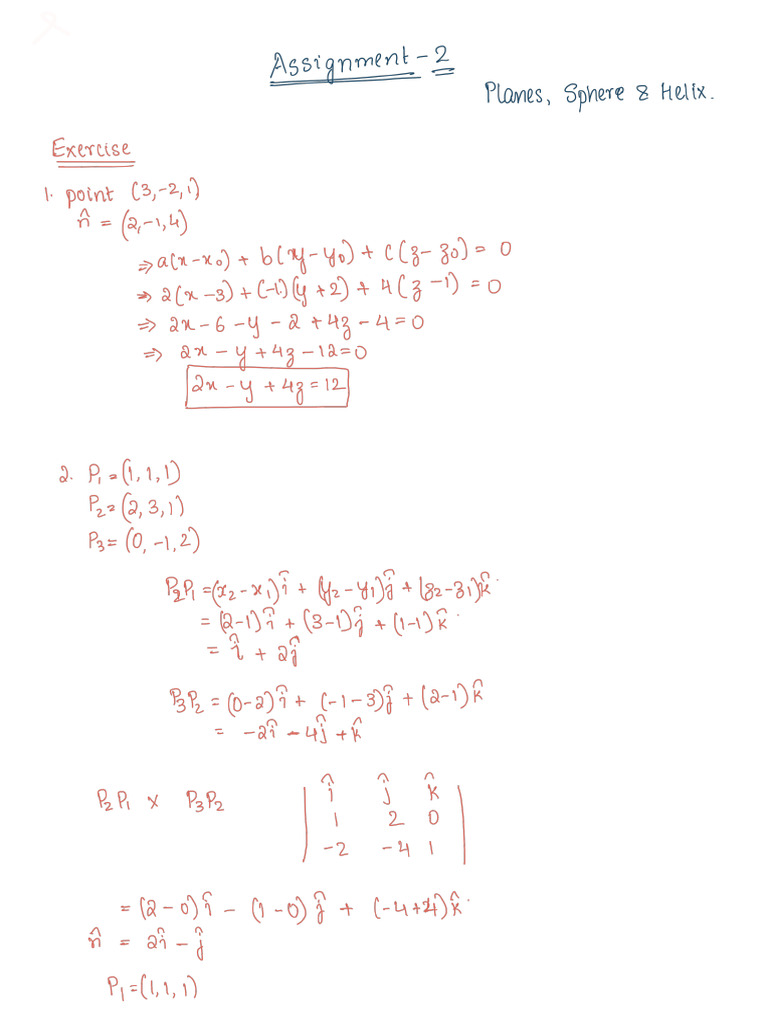 Assignment - 2
Planes, Sphere & Helix.
Exercise
1. point (3,-2,1)
n̂ = (2,-1,4)
⇒ a(x-x₀) + b(y-y₀) + c(z-z₀) = 0
⇒ 2(x-3) + (-1)(y+2) + 4(z-1) = 0
⇒ 2x-6-y-2+4z-4=0
⇒ 2x-y+4z-12=0
2x-y+4z=12
2. P₁=(1,1,1)
P₂=(2,3,1)
P₃=(0,-1,2)
P₂P₁=(x₂-x₁)î + (y₂-y₁)ĵ + (z₂-z₁)k̂
= (2-1)î + (3-1)ĵ + (1-1)k̂
= î + 2ĵ
P₃P₂ = (0-2)î + (-1-3)ĵ + (2-1)k̂
= -2î - 4ĵ + k̂
P₂P₁ x P₃P₂ | î ĵ k̂ |
1 2 0
-2 -4 1
= (2-0)î - (1-0)ĵ + (-4+4)k̂
n̂ = 2î - ĵ
P₁=(1,1,1)